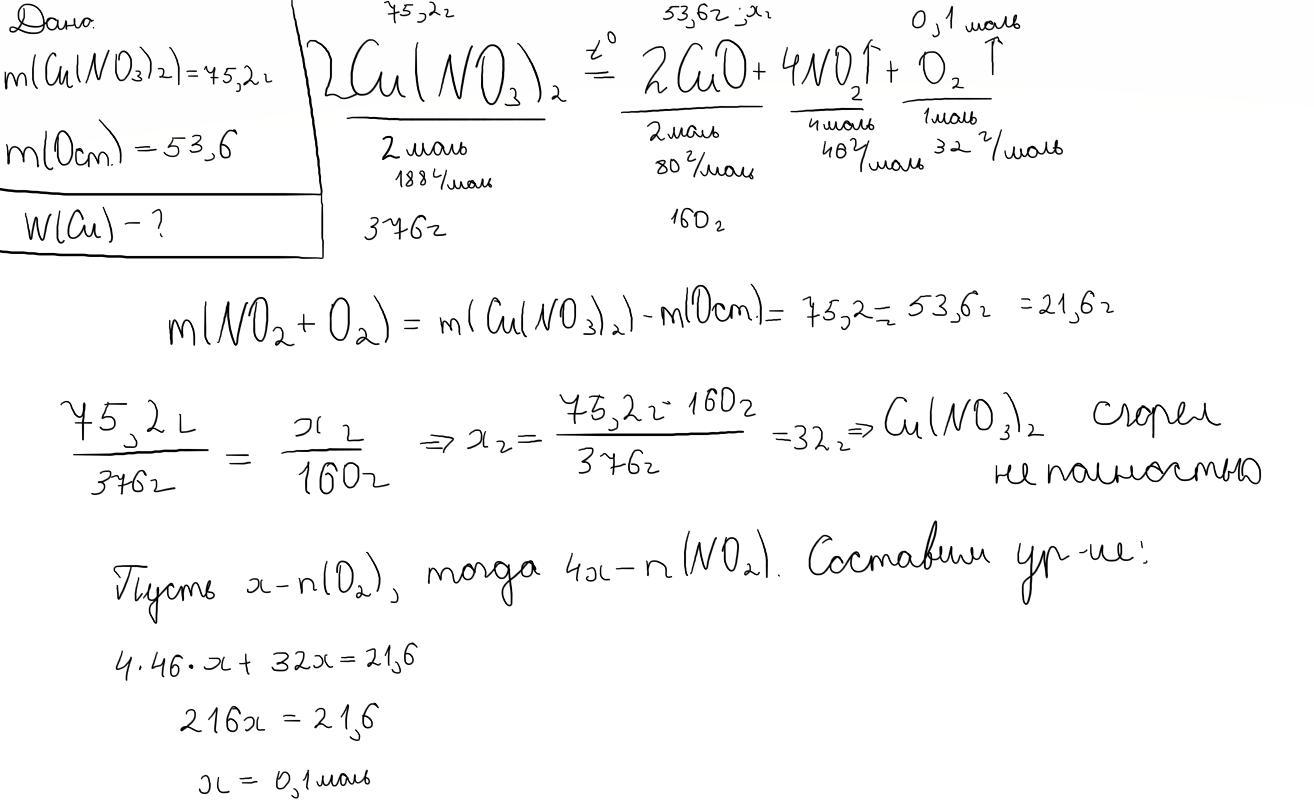 Дано:
m(Cu(NO₃)₂) = 75,2г
m(Ост.) = 53,6
W(Cu) - ?
75,2г 53,6г ; xг 0,1 моль
2Cu(NO₃)₂ t° = 2CuO + 4NO₂↑ + O₂↑
2 моль 2 моль 4 моль 1 моль
188 г/моль 80 г/моль 46 г/моль 32 г/моль
376г 160г
m(NO₂ + O₂) = m(Cu(NO₃)₂) - m(Ост.) = 75,2г - 53,6г = 21,6г
75,2г/376г = xг/160г ⇒ xг = 75,2г · 160г/376г = 32г ⇒ Cu(NO₃)₂ сгорел
не полностью
Пусть x - n(O₂), тогда 4x - n(NO₂). Составим ур-ие:
4·46·x + 32x = 21,6
216x = 21,6
x = 0,1 моль